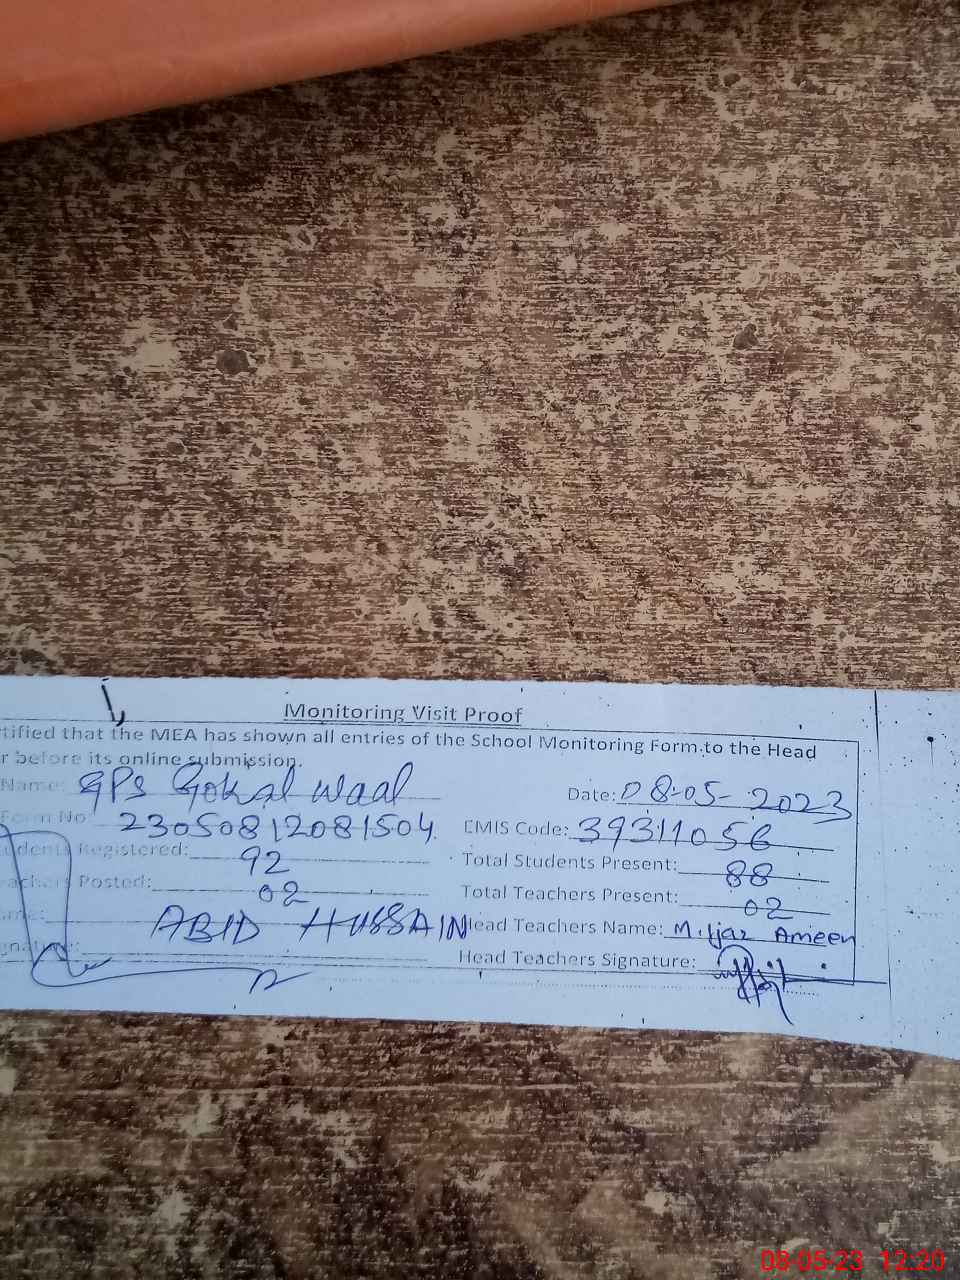 Monitoring Visit Proof
tified that the MEA has shown all entries of the School Monitoring Form to the Head
r before its online submission.
Name: GPS Gokal Waal Date: 08-05-2023
Form No 23050812081504 EMIS Code: 39311056
udents Registered: 92 Total Students Present: 88
achers Posted: 02 Total Teachers Present: 02
me: ABID HUSSAIN Head Teachers Name: M. Ijaz Ameen
gnature: Head Teachers Signature:
08-05-23 12:20